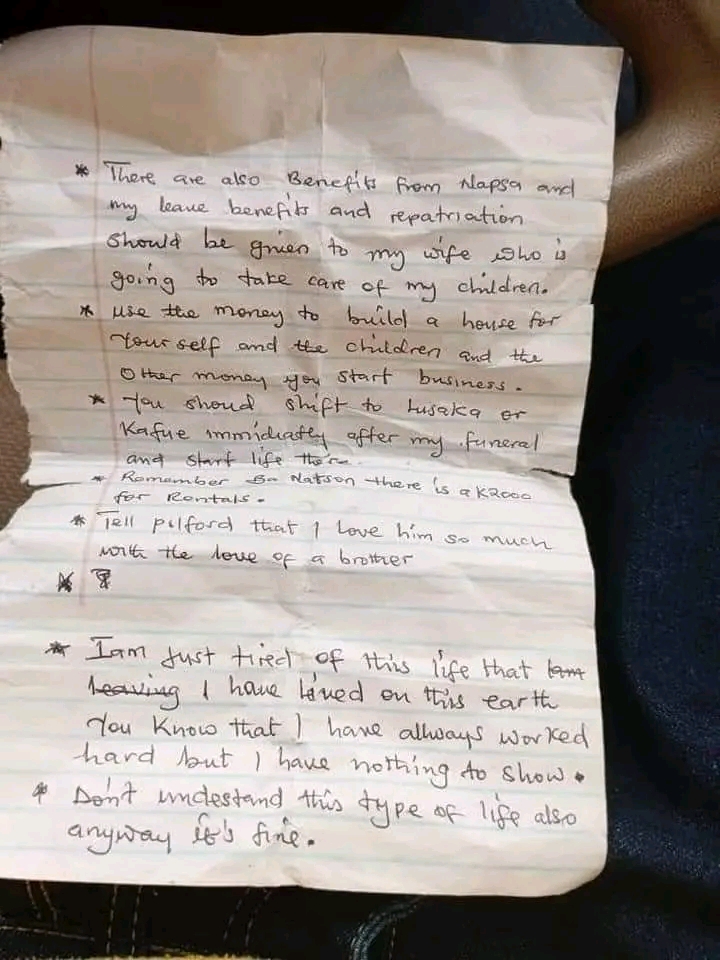 * There are also Benefits from Napsa and
my leave benefits and repatriation
should be given to my wife who is
going to take care of my children.
* use the money to build a house for
Your self and the children and the
Other money you start business.
* You shoud shift to Lusaka or
Kafue immidiatly after my funeral
and start life there.
* Remember Ba Natson there is a K2000
for Rentals.
* Tell pilford that I love him so much
with the love of a brother
* Iam just tired of this life that Iam
leaving I have lived on this earth
You know that I have allways worked
hard but I have nothing to show.
* Don't undestand this type of life also
anyway it's fine.